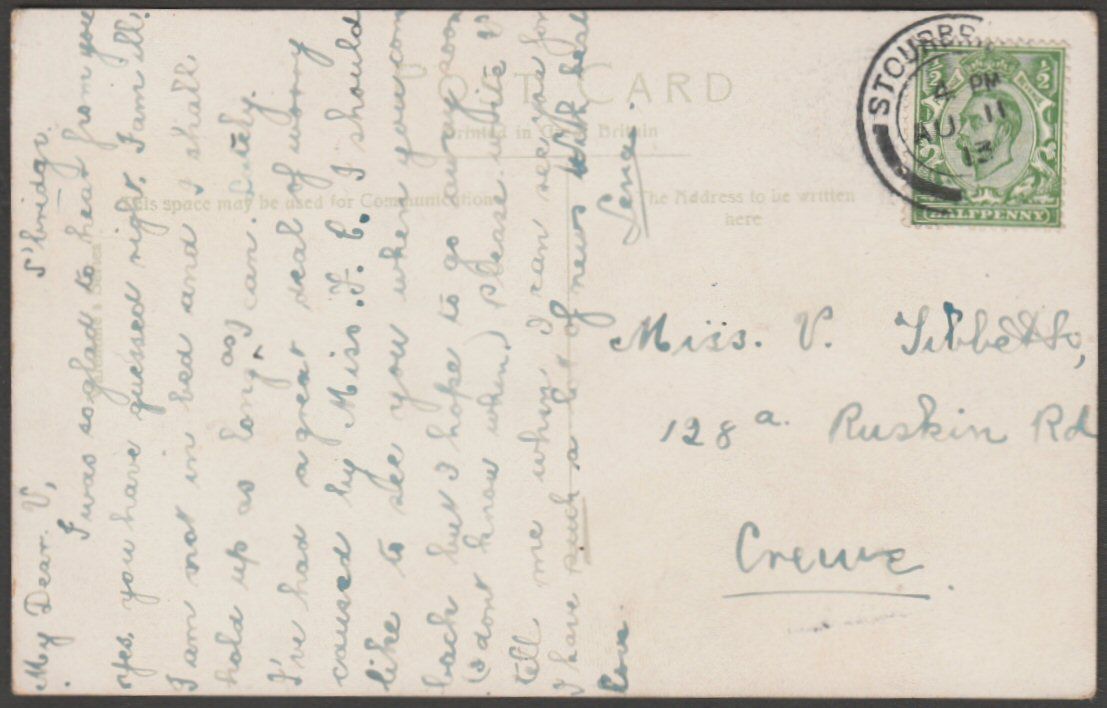 POST CARD
Printed in Great Britain
This space may be used for Communication
The Address to be written
here
STOURBR
4 PM
AU 11
13
½ ½
HALFPENNY
S'bridge.
My Dear V,
I was so glad to hear from you
yes, you have guessed right. I am ill.
I am not in bed and I shall
hold up as long as I can. lately.
I've had a great deal of worry
caused by Miss. F. C. I should
like to see you when you come
back but I hope to go away soon
(dont know when) please write V
tell me when I can see you for
I have such a lot of news With dear
love
Lena.
Miss. V. Tibbetts,
128a. Ruskin Rd
Crewe.